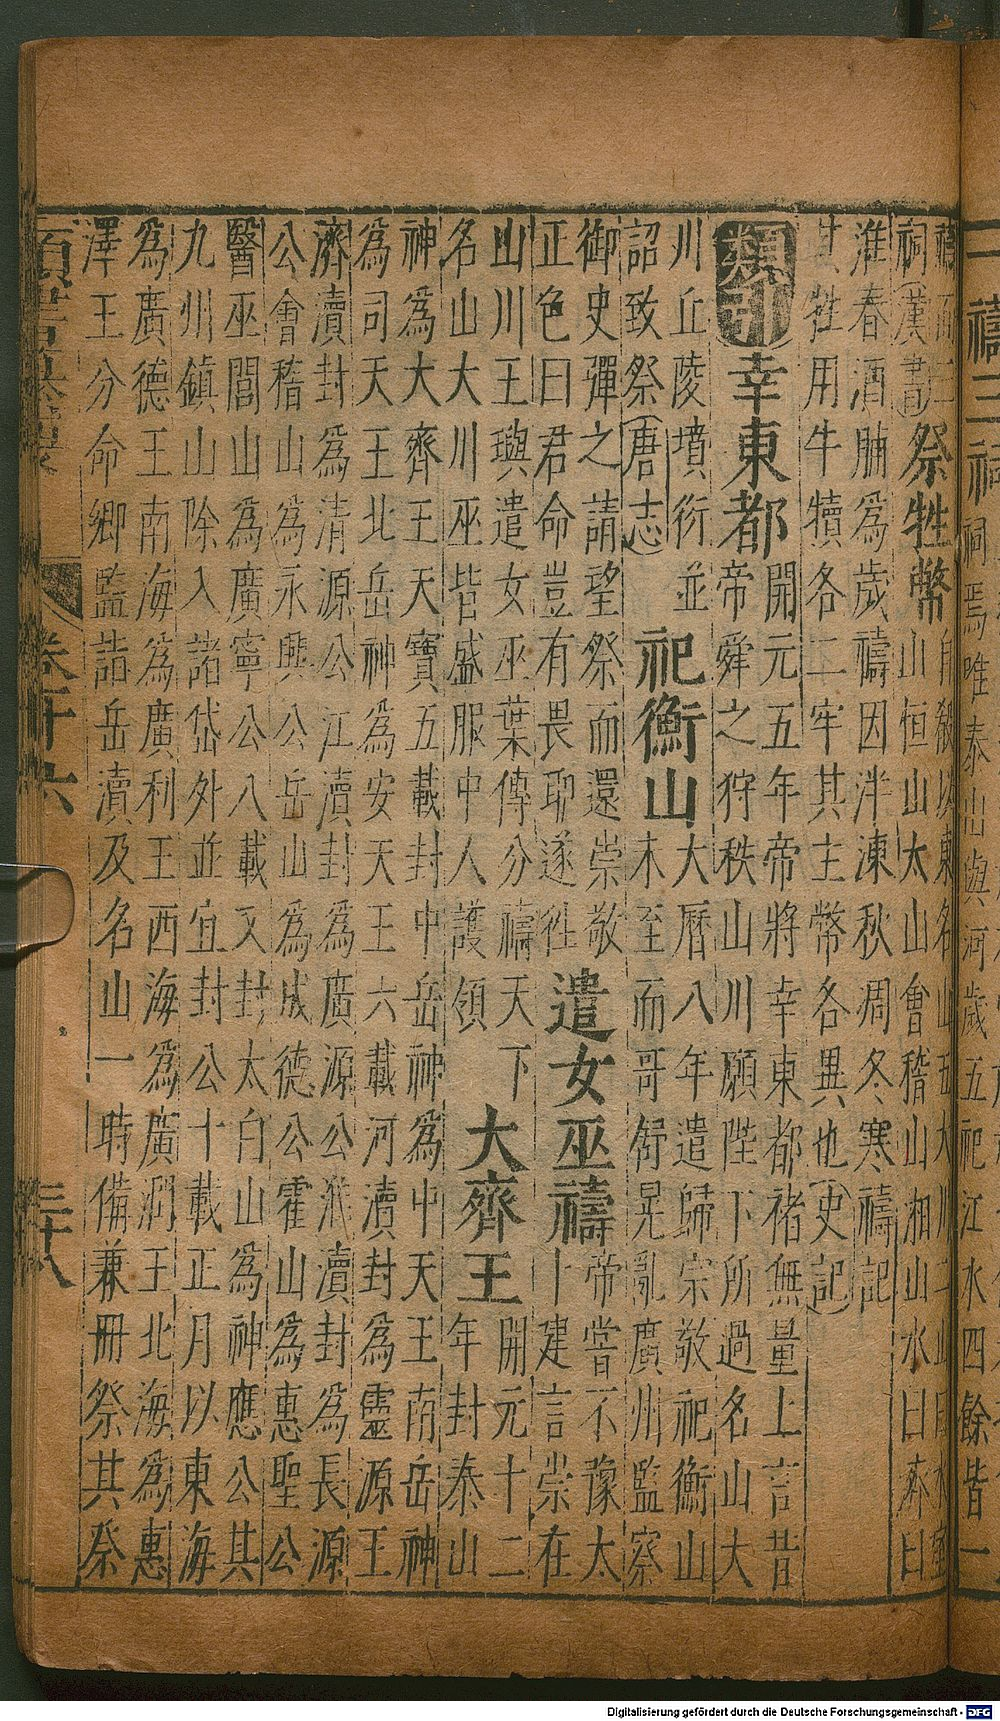 一禱三祠 祠焉唯泰山與河歲五祀江水四餘皆一
禱而三
祠(漢書)
祭牲幣
自殽以東名山五大川二山曰太室
山恒山太山會稽山湘山水曰泲曰
淮春酒脯為歲禱因泮凍秋涸冬寒禱記
其牲用牛犢各二牢其主幣各異也(史記)
類引
幸東都
開元五年帝將幸東都褚無量上言昔
帝舜之狩秩山川願陛下所過名山大
川丘陵墳衍並
詔致祭(唐志)
祀衡山
大曆八年遣歸宗敬祀衡山
未至而哥舒晃亂廣州監察
御史彈之請望祭而還崇敬
正色曰君命豈有畏耶遂往
遣女巫禱
帝嘗不豫太
卜建言祟在
山川王璵遣女巫乘傳分禱天下
名山大川巫皆盛服中人護領
大齊王
開元十二
年封泰山
神為大齊王天寶五載封中岳神為中天王南岳神
為司天王北岳神為安天王六載河瀆封為靈源王
濟瀆封為清源公江瀆封為廣源公淮瀆封為長源
公會稽山為永興公岳山為成德公霍山為惠聖公
醫巫閭山為廣寧公八載又封太白山為神應公其
九州鎮山除入諸岱外並宜封公十載正月以東海
為廣德王南海為廣利王西海為廣潤王北海為惠
澤王分命卿監詣岳瀆及名山一時備兼冊祭其祭
三十八
Digitalisierung gefördert durch die Deutsche Forschungsgemeinschaft - DFG